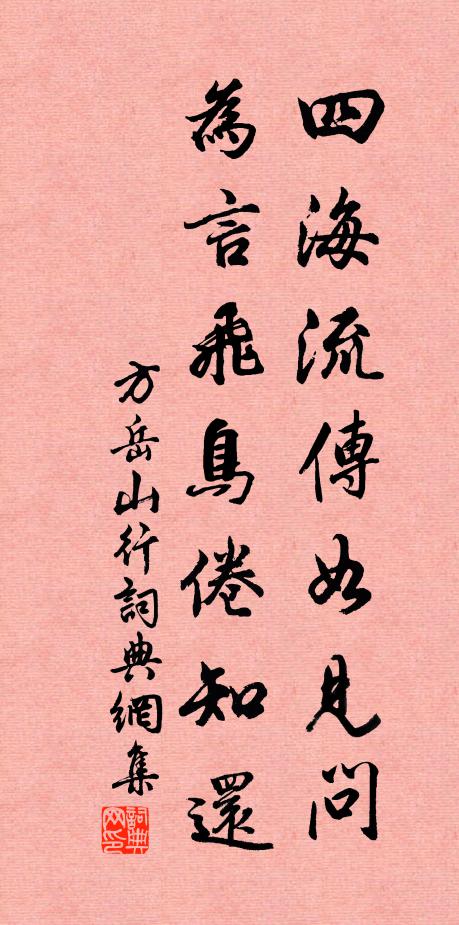 四海流傳如見問
為言飛鳥倦知還
方岳山行詞典網集
詞典网印